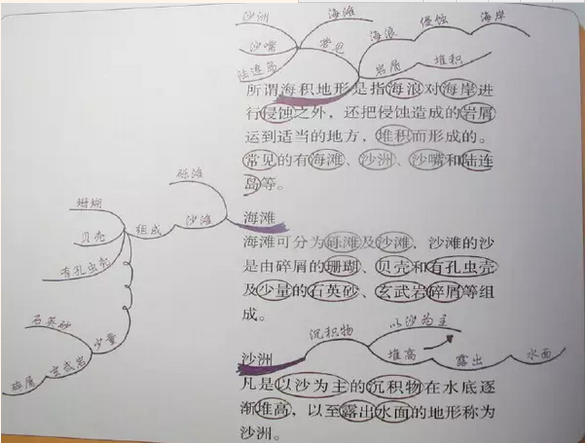 沙洲
海滩
沙嘴
常见
陆连岛
海浪
侵蚀
海岸
岩屑
堆积
所谓海积地形是指海浪对海岸进
行侵蚀之外，还把侵蚀造成的岩屑
运到适当的地方，堆积而形成的。
常见的有海滩、沙洲、沙嘴和陆连
岛等。
砾滩
珊瑚
贝壳
有孔虫壳
组成
沙滩
石英砂
玄武岩
少量
碎屑
海滩
海滩可分为砾滩及沙滩，沙滩的沙
是由碎屑的珊瑚、贝壳和有孔虫壳
及少量的石英砂、玄武岩碎屑等组
成。
沉积物
以沙为主
堆高
露出
水面
沙洲
凡是以沙为主的沉积物在水底逐
渐堆高，以至露出水面的地形称为
沙洲。